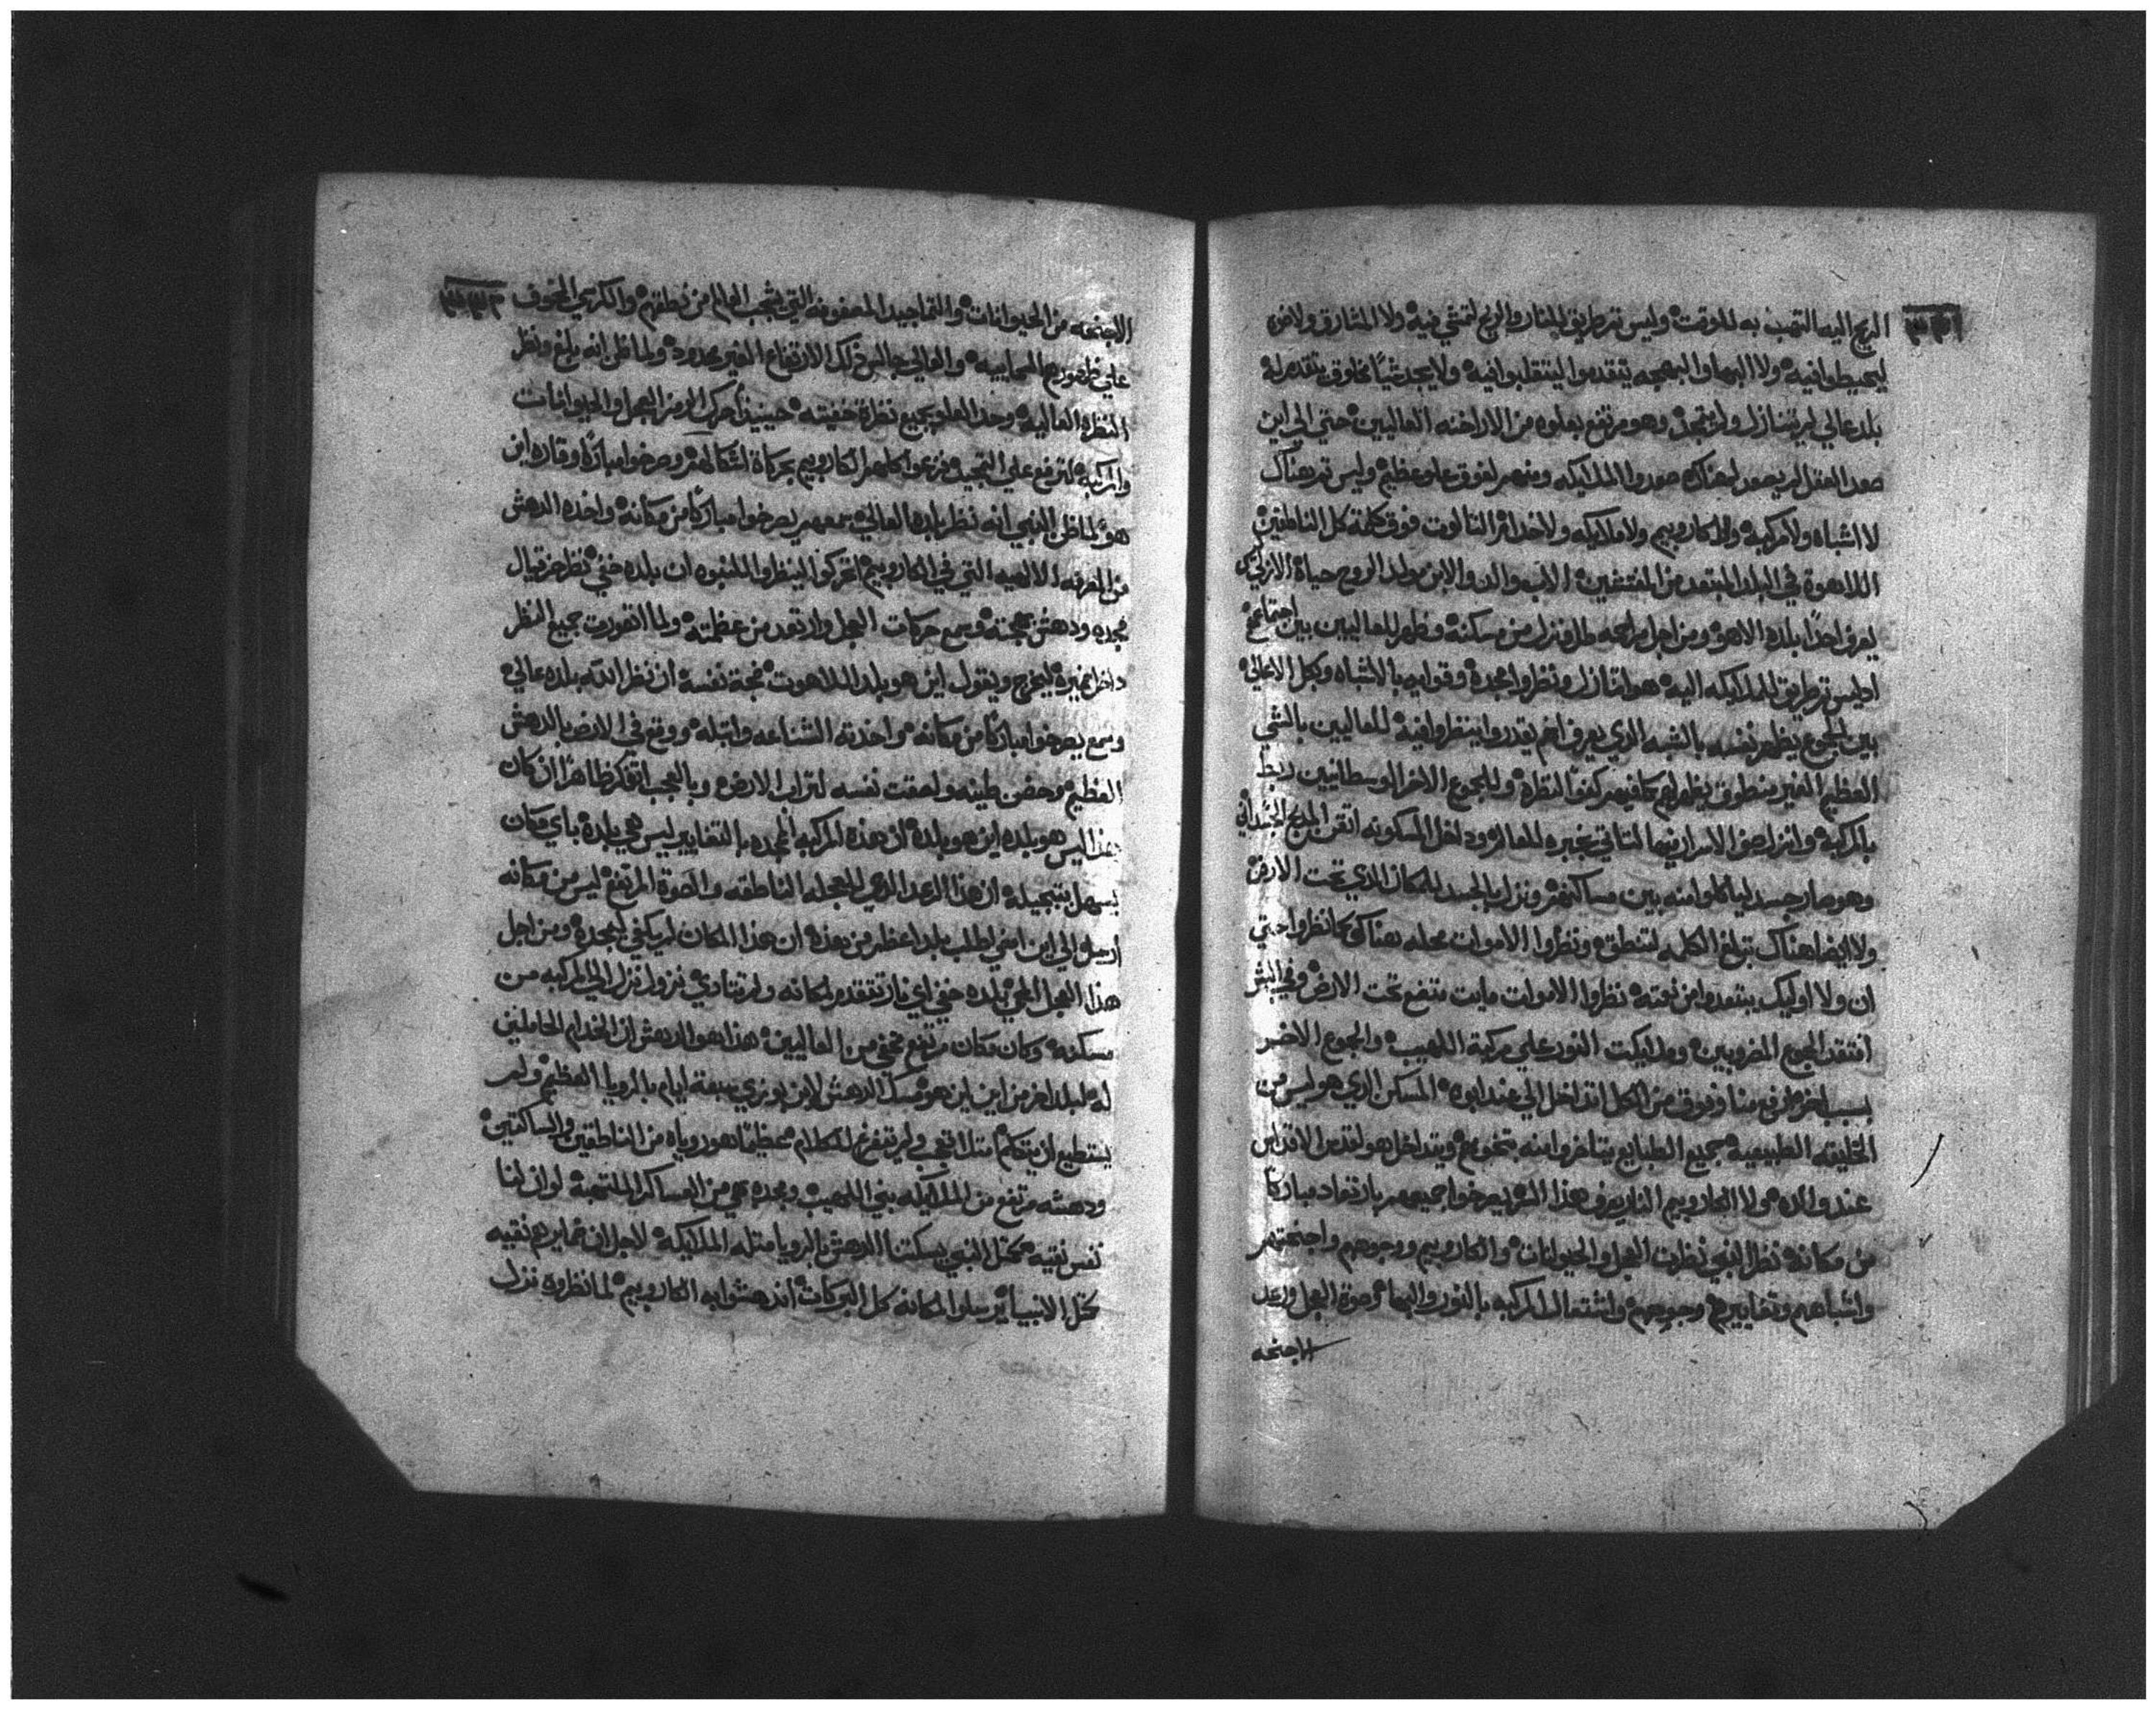 الريح اليه التهب به للوقت وليس تم طريق للنار والريح لتمشي فيه ولا المشارق ولا فرق
ليحيطوا فيه ولا البها والبهجه يتقدموا ليتقلبوا فيه ولا يجد شيًا مخلوق يتقدم له
بلد عالي لم يتنازل وهو مرتفع بعلوه من الاراخنه العاليين حتي الي اين
صعد العقل لم يصعد لهناك صعدوا الملايكه ومنهم لفوق علو عظيم وليس تم هناك
لا اشباه ولا مركبه ولا كاروبيم ولا ملايكه ولا خدام الثالوت فوق كلمة كل الناطقين
اللاهوة في البلد المبتعد من المفتشين الاب والد والابن مولد الروح حياة
يعرف احدًا بلده الا هو ومن اجل مراحمه نزل من مسكنه وظهر للعاليين بين اجتماعهم
اد ليس تم طريق للملايكه اليه هو اتنازل ونظروا مجده وقواته بالاشباه وبكل الاعالي
بين الجموع يظهر نفسه بالشبه الدي يعرف انهم يقدروا ينظروا فيه للعاليين بالشي
العظيم الغير منطوق يظهر لهم كما فيهم كفوًا لنظره وللجموع الاخر الوسطانيين ربط
بالمركبه
وهو صار جسد لياكلوا منه بين مساكنهم ونزل بالجسد للمكان الدي تحت الارض
ولا ايضا هناك تبلغ الكلمه لتنطق ونظروا الاموات محله هناك كما نظروا حتي
ان ولا اوليك يبتعدوا من نعمته نظروا الاموات مايت متضع تحت الارض وفي البشر
افتقد الجمع المضروبين وملايكت النور علي مركبة اللهيب والجموع الاخر
بسبب اخر طرف منا وفوق من الكل اتداخل الي عند ابوه المسكن الدي هو ليس من
الخليقه الطبيعيه جميع الطبايع يتاخروا منه بتخومهم ويتداخل هو لقدس الاقداس
عند والده ولا الكاروبيم النار يعرف هذا السر يصرخوا جميعهم بارتعاد مباركًا
من مكانه نظر النبي نظرات العجل والحيوانات والكاروبيم ووجوههم واجنحتهم
واشباههم وتغاييرهم وجموعهم واشتعال المركبه بالنور والبها وصوة العجل ورعد
الاجنحه
الاجنحه من الحيوانات والتماجيد المصفوفه التي يتعجب العالم من نطقهم والكرسي المخوف
علي ظهورهم السماييه والعالي جالس ذاك الارتفاع الغير محدود ولما ظن انه بلغ ونظر
النظره العاليه وحد العلو بجميع نظرة خفيته حينيذ احرك الرمز العجل والحيوانات
والمركبه لترفع علي التمجيد وفزعوا كلهم الكاروبيم بحركاة اشكالهم وصرخوا مباركًا وقاره اين
هو لما ظن النبي انه نظر بلده العالي سمعهم يصرخوا مباركًا من مكانه واخذه الدهش
من المعرفه الالهيه التي في الكاروبيم اتحركوا لينظروا للنبوه ان بلده خفي نظر حزقيال
مجده ودهش بهجته وسمع حركات العجل وارتعد من عظمته ولما اتصورت جميع المنظر
داخل ضميره ليخرج ويقول اين هو بلد اللاهوت مجة نفسه ان نظر الله بلده عالي
وسمع يصرخوا مباركًا من مكانه واخذته الشناعه وابتله ووقع في الارض بالدهش
العظيم وحضن طينه ولصقت نفسه لتراب الارض وبالعجب اتفكر ظاهرًا ان كان
هذا ليس هو بلده اين هو بلده ان هذه المركبه الممجده بالتغايير ليس هي بلده باي مكان
يسهل بتبجيله ان هذا الرعد الدي للعجله الناطقه والصوة المرتفع ليس من مكانه
ارسل الي اين امضي اطلب بلد اعظم من بعده ان هذا المكان لم يكفي لمجده ومن اجل
هذا العجل الحي بلده خفي اي نار تتقدم لمكانه ولم تتادي نزول نزل الي المركبه من
مسكنه وكان مكان مرتفع مخفي من العاليين هذا هو الدهش ان الخدام الحاملين
له بلد اخر من اين اين هو مسك الدهش لابن بوزي سبعة ايام بالرويا العظيم ولم
يستطيع ان يتكلم متل التهب ولم تفرغ للكلام عظيمًا هو روياه من الناطقين والساكتين
ودهشه مرتفع من الملايكه بني اللهيب ومجده هي من العساكر الملتهبه لو ان لنا
نفس نقيه مثل النبي يسكتنا الدهش بالرويا مثله الملايكه لاجل ان ضمايرهم نقيه
مثل الانبيا يرسلوا لمكانه كل البركات اندهشوا به الكاروبيم لما نظروه نزل